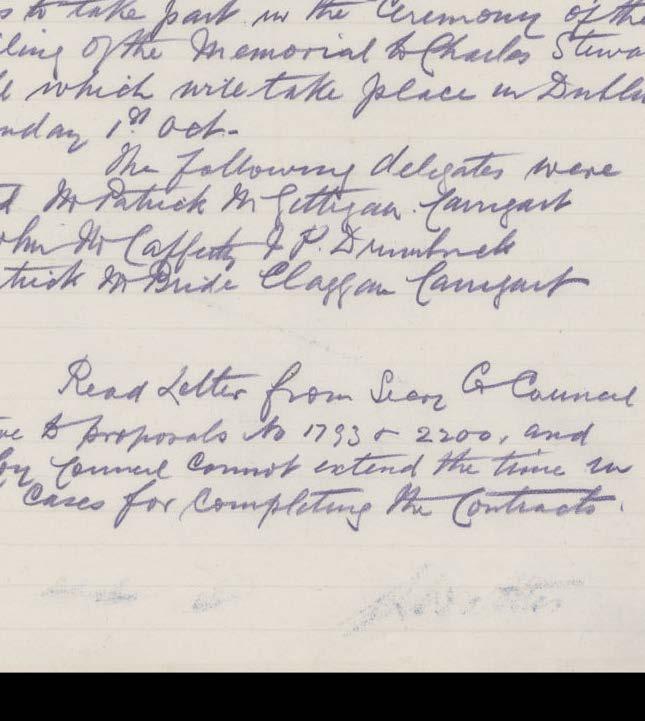 s to take part in the Ceremony of the
iling of the Memorial to Charles Stewa
ll which will take place in Dublin
nday 1st Oct-
The following delegates were
d Mr Patrick McGettigan. Carrigart
ohn McCafferty J P. Drumbrick
trick McBride Claggan Carrigart
Read Letter from Secy Co Council
ve to proposals No 1793 & 2200, and
Council cannot extend the time in
cases for completing the Contracts.